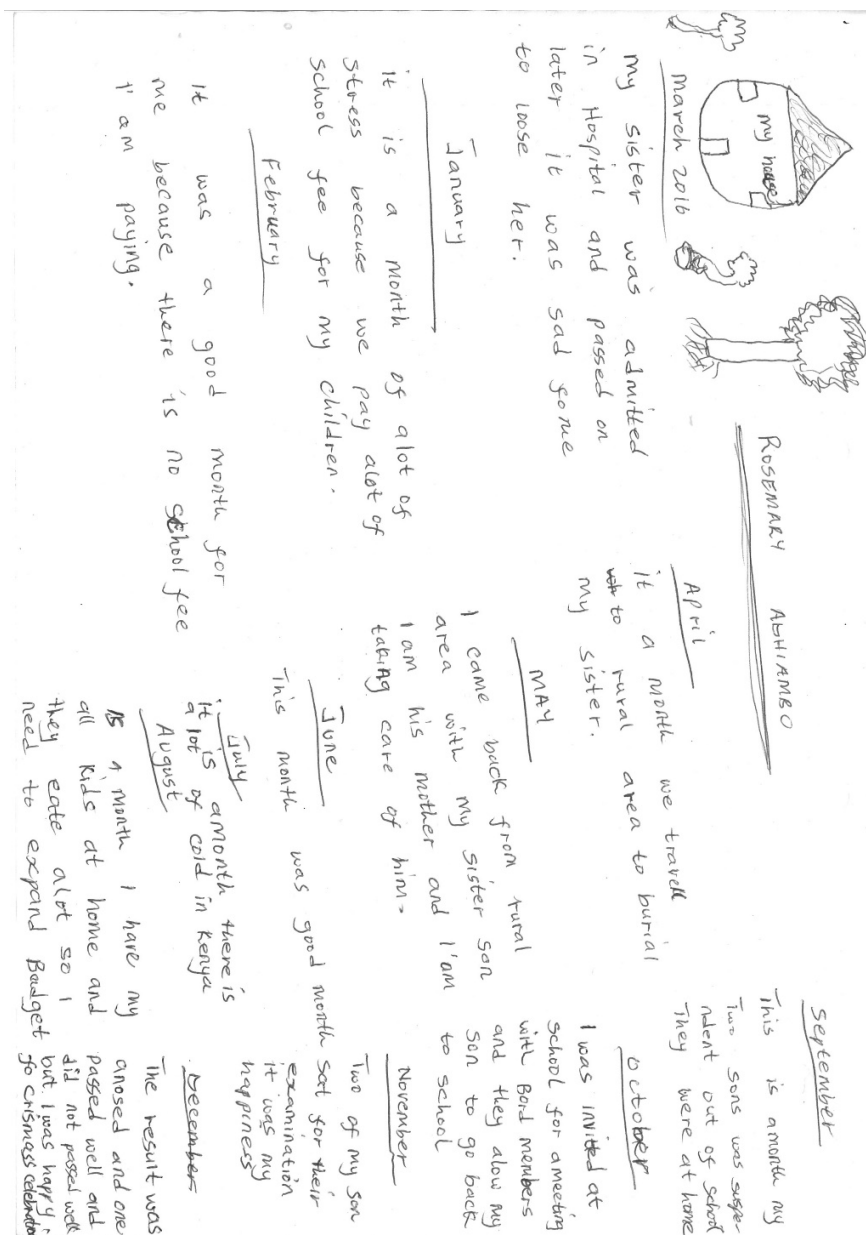 my house
ROSEMARY ADHIAMBO
March 2016
my sister was admitted
in Hospital and passed on
later it was sad for me
to loose her.
January
it is a month of alot of
stress because we pay alot of
school fee for my children.
February
It was a good month for
me because there is no school fee
I'am paying.
April
it a month we travell
to rural area to burial
my sister.
MAY
I came back from rural
area with my sister son
I am his mother and I'am
taking care of him.
June
This month was good month
July
it is amonth there is
a lot of cold in Kenya
August
is a month I have my
all kids at home and
they eate alot so I
need to expand Badget
September
This is amonth my
Two sons was suspe-
ndent out of school
They were at home
October
I was invited at
school for ameeting
with Bord members
and they alow my
son to go back
to school
November
Two of my son
sat for their
examination
it was my
happiness
December
The result was
anosed and one
passed well and
did not passed well
but I was happy
fo crismass celebration